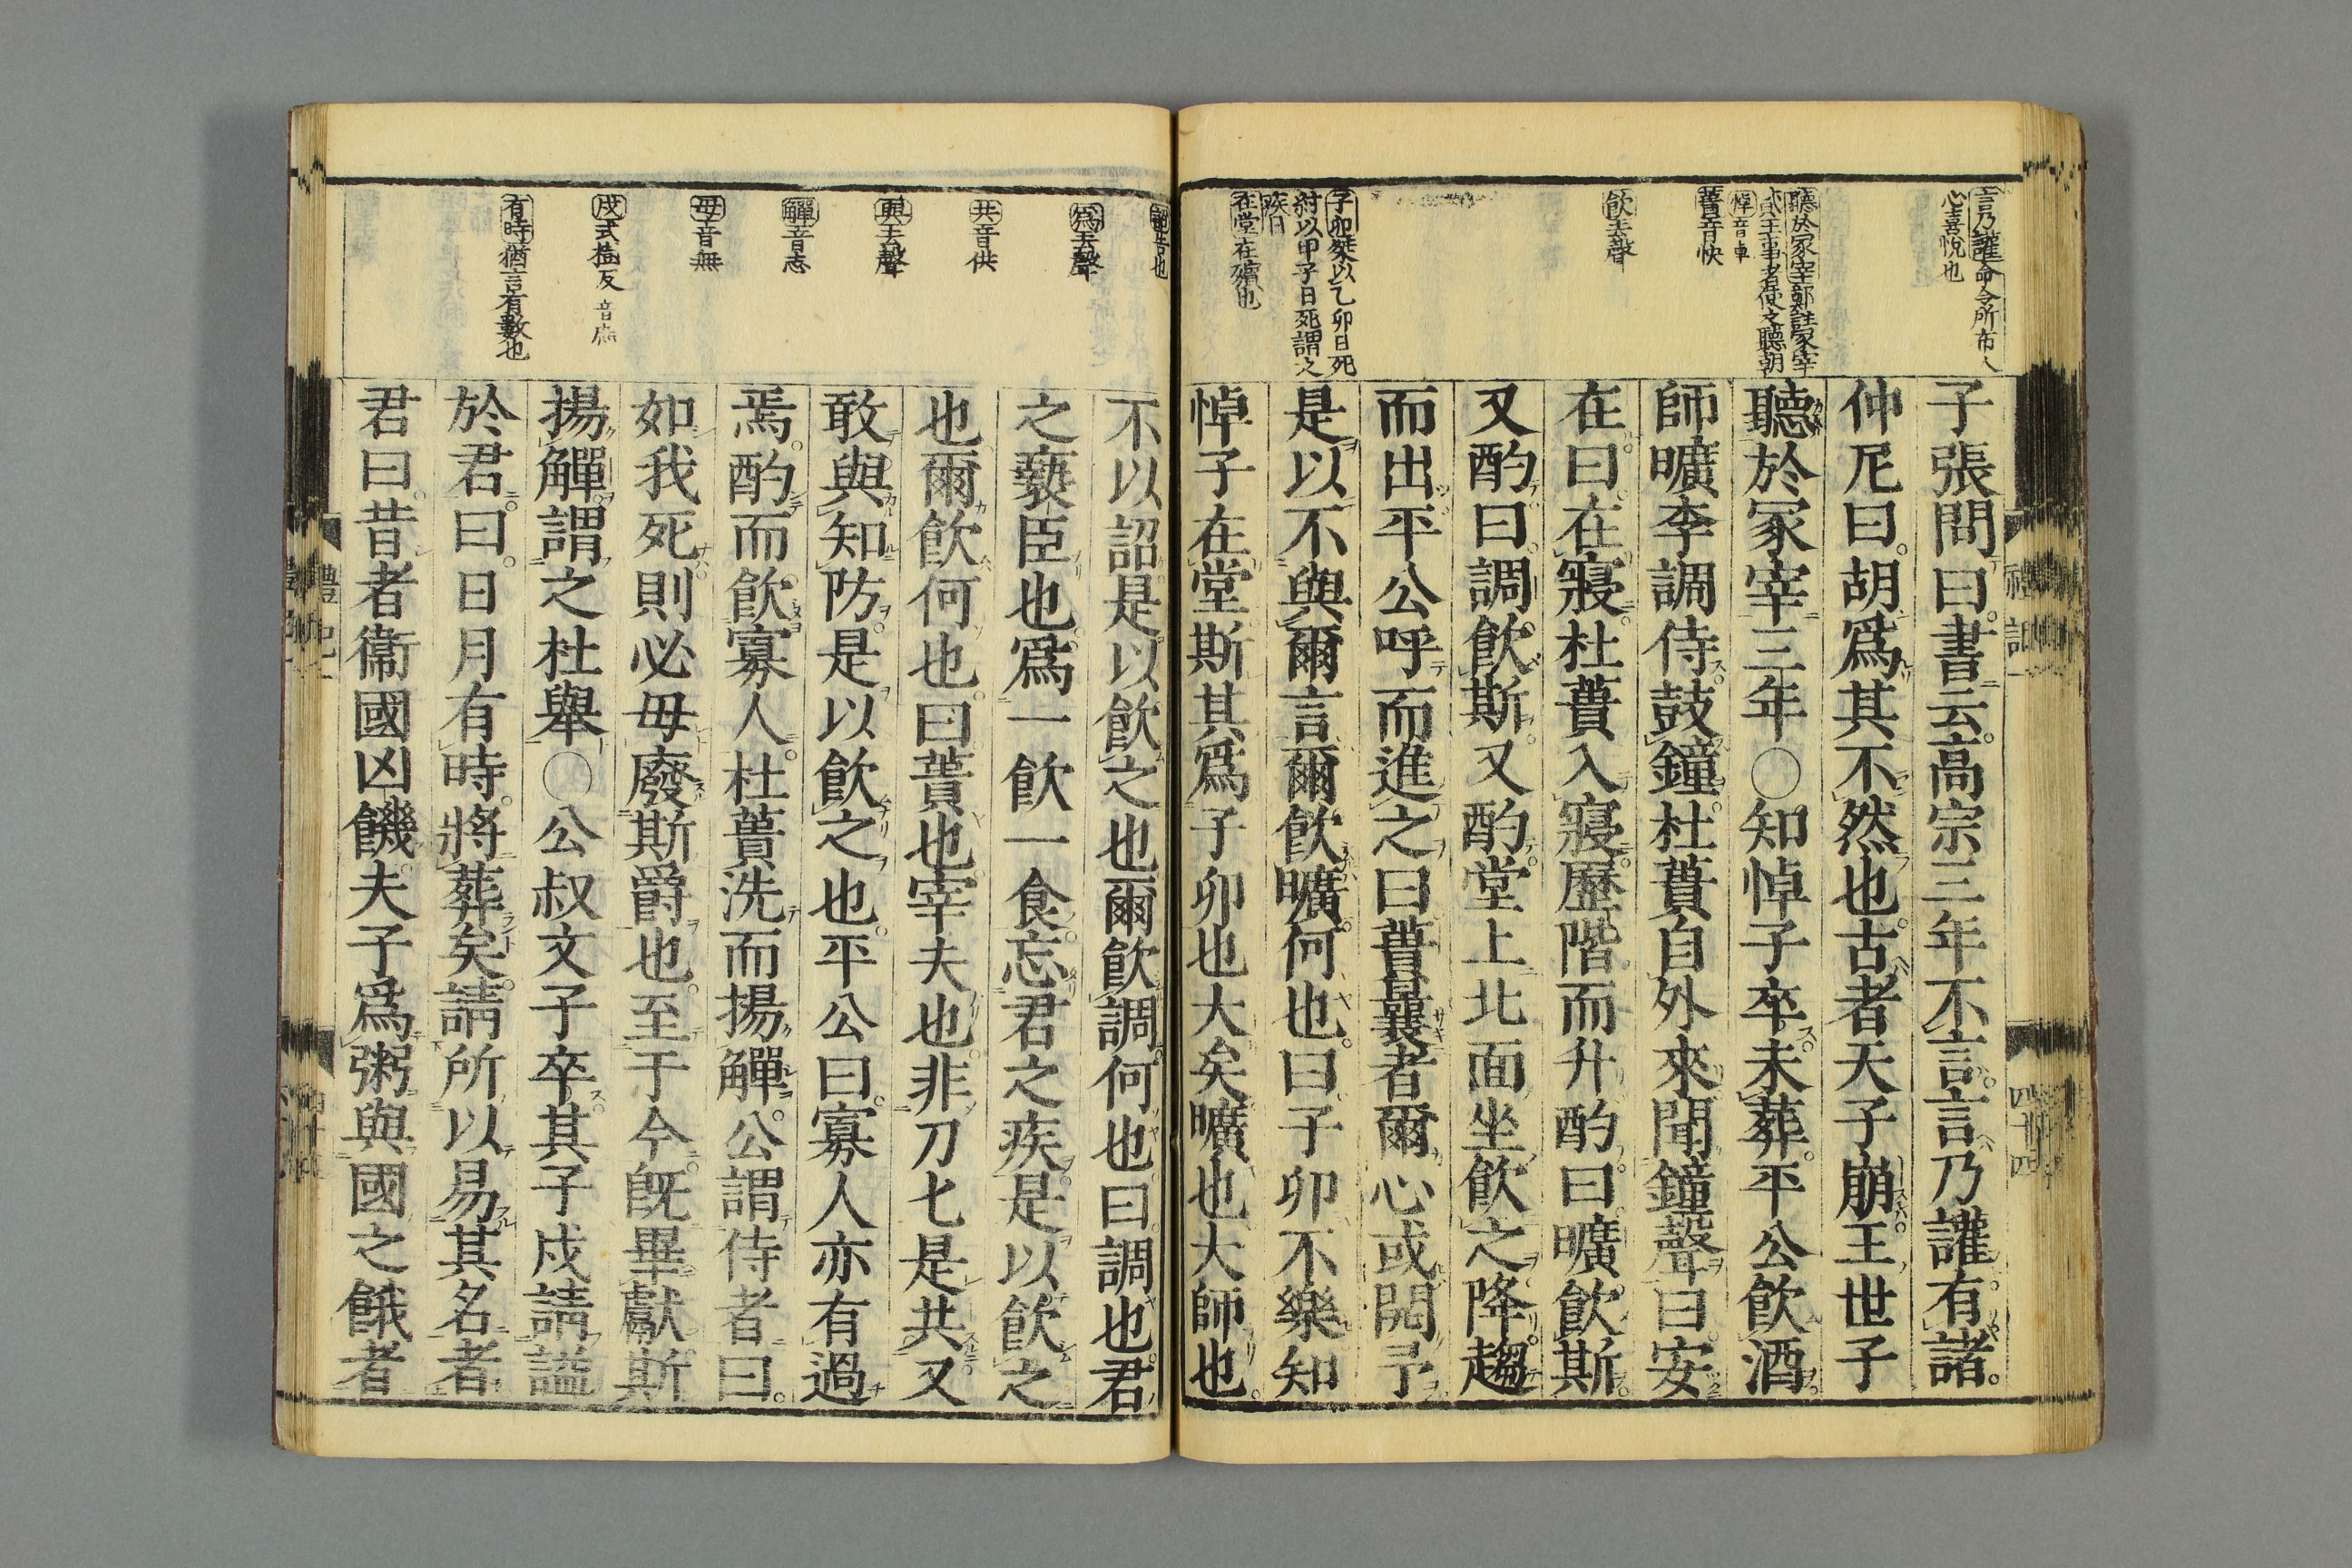 言乃讙命令所布人
心喜悅也
聽於冢宰鄭註冢宰
貳王事者使之聽朝
悼音卓
蕢音快
飮去聲
子卯桀以乙卯日死
紂以甲子日死謂之
疾日
在堂在殯也
子張問曰書云高宗三年不言言乃讙有諸
仲尼曰胡爲其不然也古者天子崩王世子
聽於冢宰三年○知悼子卒未葬平公飮酒
師曠李調侍鼓鐘杜蕢自外來聞鐘聲曰安
在曰在寢杜蕢入寢歷階而升酌曰曠飮斯
又酌曰調飮斯又酌堂上北面坐飮之降趨
而出平公呼而進之曰蕢曩者爾心或開予
是以不與爾言爾飮曠何也曰子卯不樂知
悼子在堂斯其爲子卯也大矣曠也大師也
禮記一
四十四
詔告也
爲去聲
共音供
與去聲
觶音志
毋音無
戍式樹反
有時猶言有數也
不以詔是以飮之也爾飮調何也曰調也君
之褻臣也爲一飮一食忘君之疾是以飮之
也爾飮何也曰蕢也宰夫也非刀匕是共又
敢與知防是以飮之也平公曰寡人亦有過
焉酌而飮寡人杜蕢洗而揚觶公謂侍者曰
如我死則必毋廢斯爵也至于今旣畢獻斯
揚觶謂之杜舉○公叔文子卒其子戍請謚
於君曰日月有時將葬矣請所以易其名者
君曰昔者衞國凶饑夫子爲粥與國之餓者
禮記一